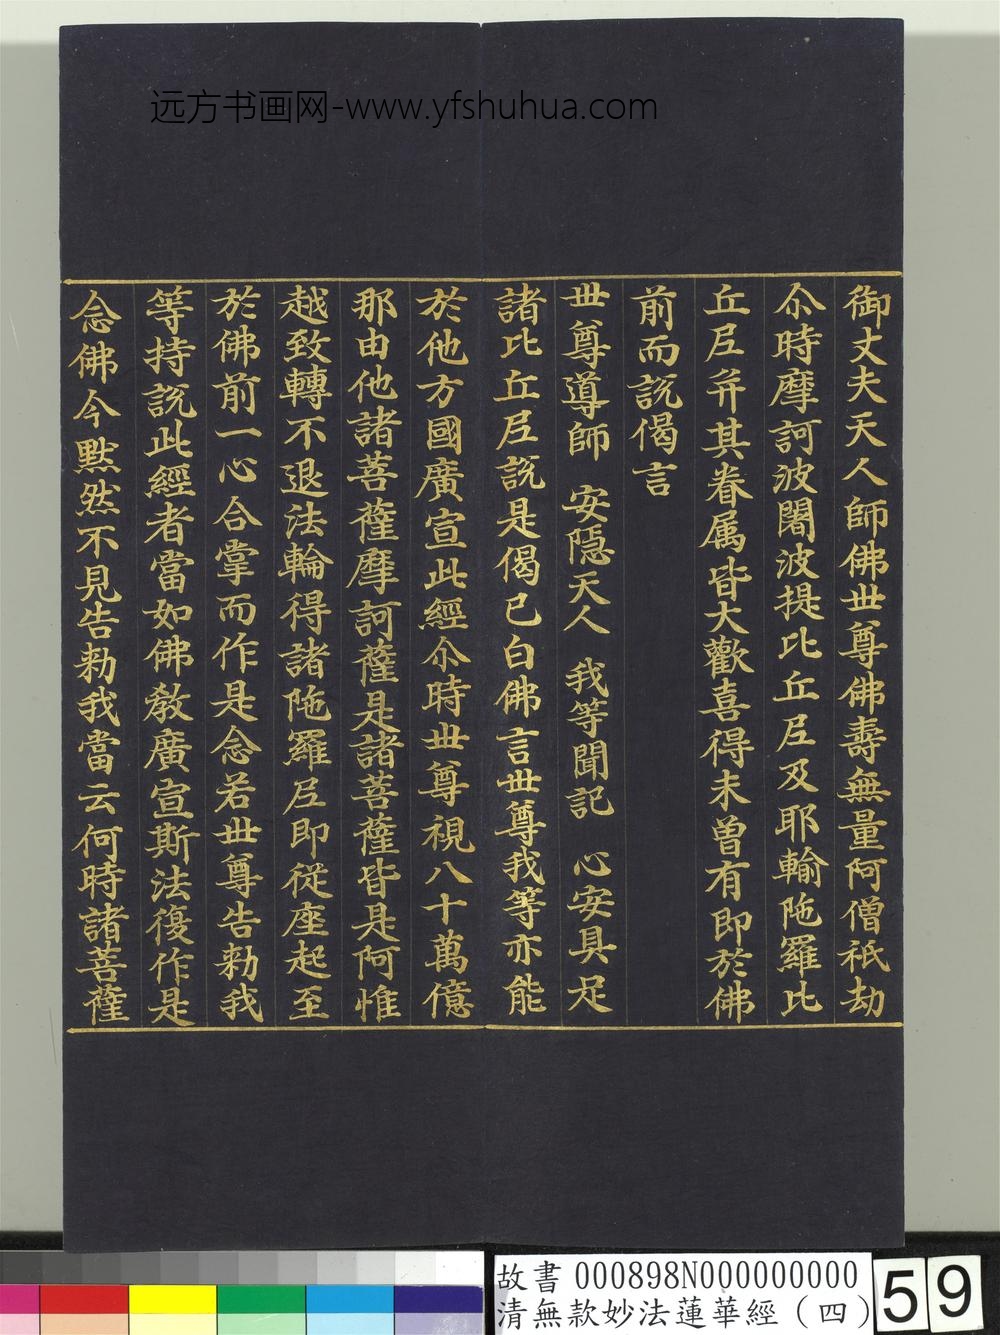 远方书画网-www.yfshuhua.com
御丈夫天人師佛世尊佛壽無量阿僧祇劫
尒時摩訶波闍波提比丘尼及耶輸陁羅比
丘尼并其眷属皆大歡喜得未曾有即於佛
前而說偈言
世尊導師　安隱天人　我等聞記　心安具足
諸比丘尼說是偈已白佛言世尊我等亦能
於他方國廣宣此經尒時世尊視八十萬億
那由他諸菩薩摩訶薩是諸菩薩皆是阿惟
越致轉不退法輪得諸陁羅尼即從座起至
於佛前一心合掌而作是念若世尊告勑我
等持說此經者當如佛教廣宣斯法復作是
念佛今默然不見告勑我當云何時諸菩薩
故書 000898N000000000
清無款妙法蓮華經（四）
59